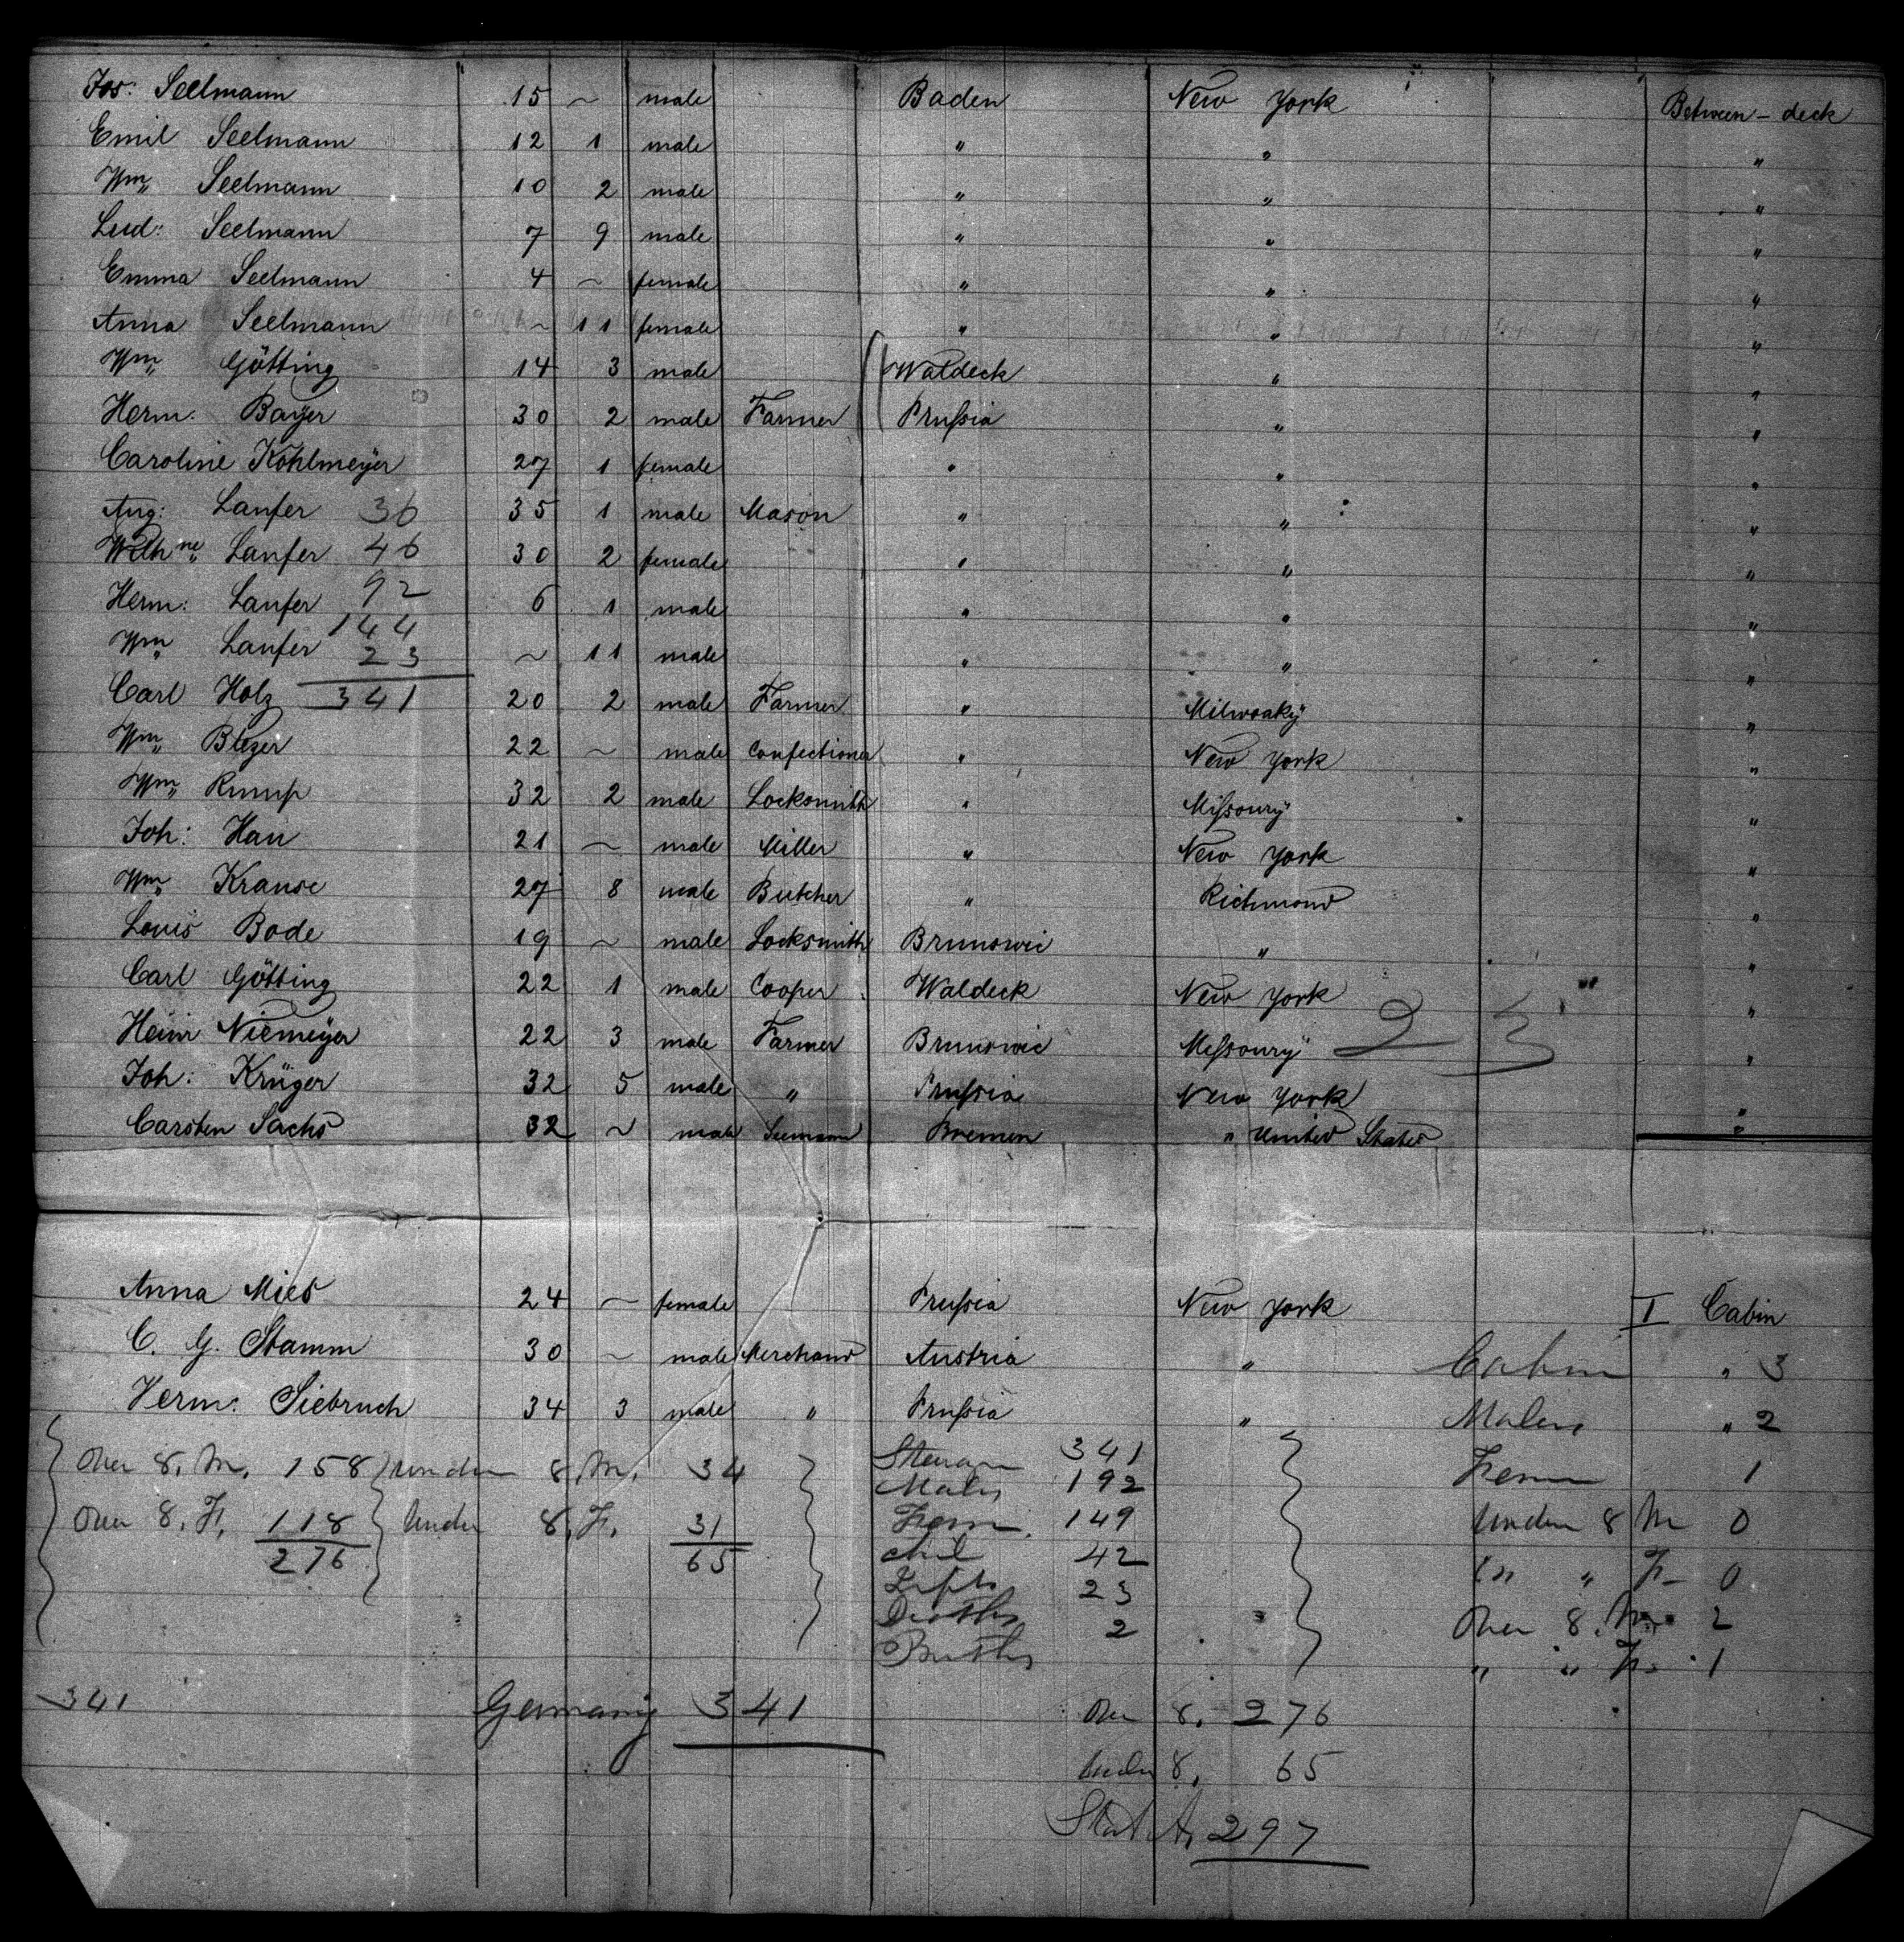 Jos: Seelmann 15 ~ male Baden New York Between-deck
Emil Seelmann 12 1 male " " "
Wm Seelmann 10 2 male " " "
Lud: Seelmann 7 9 male " " "
Emma Seelmann 4 ~ female " " "
Anna Seelmann ~ 11 female " " "
Wm Götting 14 3 male Waldeck " "
Herm: Bayer 30 2 male Farmer Prussia " "
Caroline Kohlmeyer 27 1 female " " "
Aug: Laufer 36 35 1 male Mason " " "
Wilhne Laufer 46 30 2 female " " "
Herm: Laufer 92 6 1 male " " "
144
Wm Laufer 23 ~ 11 male " " "
Carl Holz 341 20 2 male Farmer " Milwoaky "
Wm 22 ~ male Confectioner " New York "
Wm Rump 32 2 male Locksmith " Missoury "
Joh: Hau 21 ~ male Miller " New York "
Wm Krause 27 8 male Butcher " Richmond "
Louis Bode 19 ~ male Locksmith Brunswic " "
Carl Götting 22 1 male Cooper Waldeck New York "
Heinr Niemeyer 22 3 male Farmer Brunswic Messoury 23 "
Joh: Krüger 32 5 male " Prussia New York "
Carsten Sachs 32 ~ male Seemann Bremen " United States "
Anna Mies 24 ~ female Prussia New York I Cabin
C. G. Stamm 30 ~ male Merchand Austria " Cabin " 3
Herm: Siebruch 34 3 male " Prussia " Males " 2
Over 8. M. 158 under 8 M. 34 341 Fem 1
Males 192
Over 8. F. 118 Under 8. F. 31 Fem. 149 Under 8 M 0
276 65 Chil 42 " F- 0
23
Deaths 2 Over 8. M. 2
Births " " F- 1
341 Germany 341 Over 8. 276
Under 8. 65
297